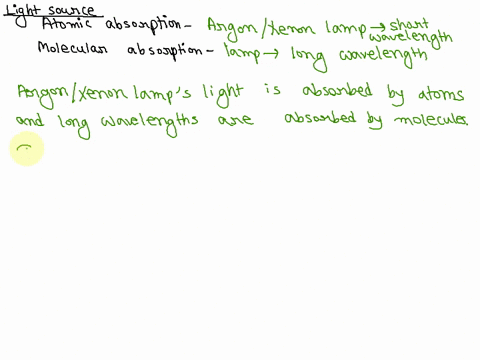 Light source
Atomic absorption - Argon/Xenon lamp → short wavelength
Molecular absorption - lamp → long wavelength
Argon/Xenon lamp's light is absorbed by atoms
and long wavelengths are absorbed by molecules.